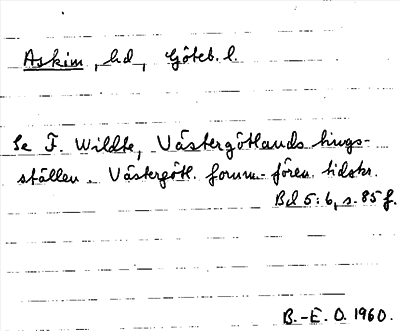 Askim, hd, Göteb. l.
Se F. Wildte, Västergötlands tings-
ställen. Västergötl. fornm.-fören. tidskr.
Bd 5:6, s. 85 f.
B.-E. O. 1960.